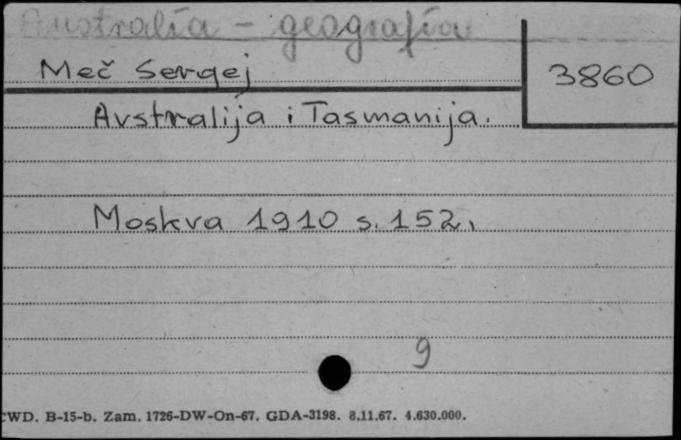 Australia - geografia
Meč Sergej
3860
Avstralija i Tasmanija.
Moskva 1910 s. 152,
9
CWD. B-15-b. Zam. 1726-DW-On-67. GDA-3198. 8.11.67. 4.630.000.